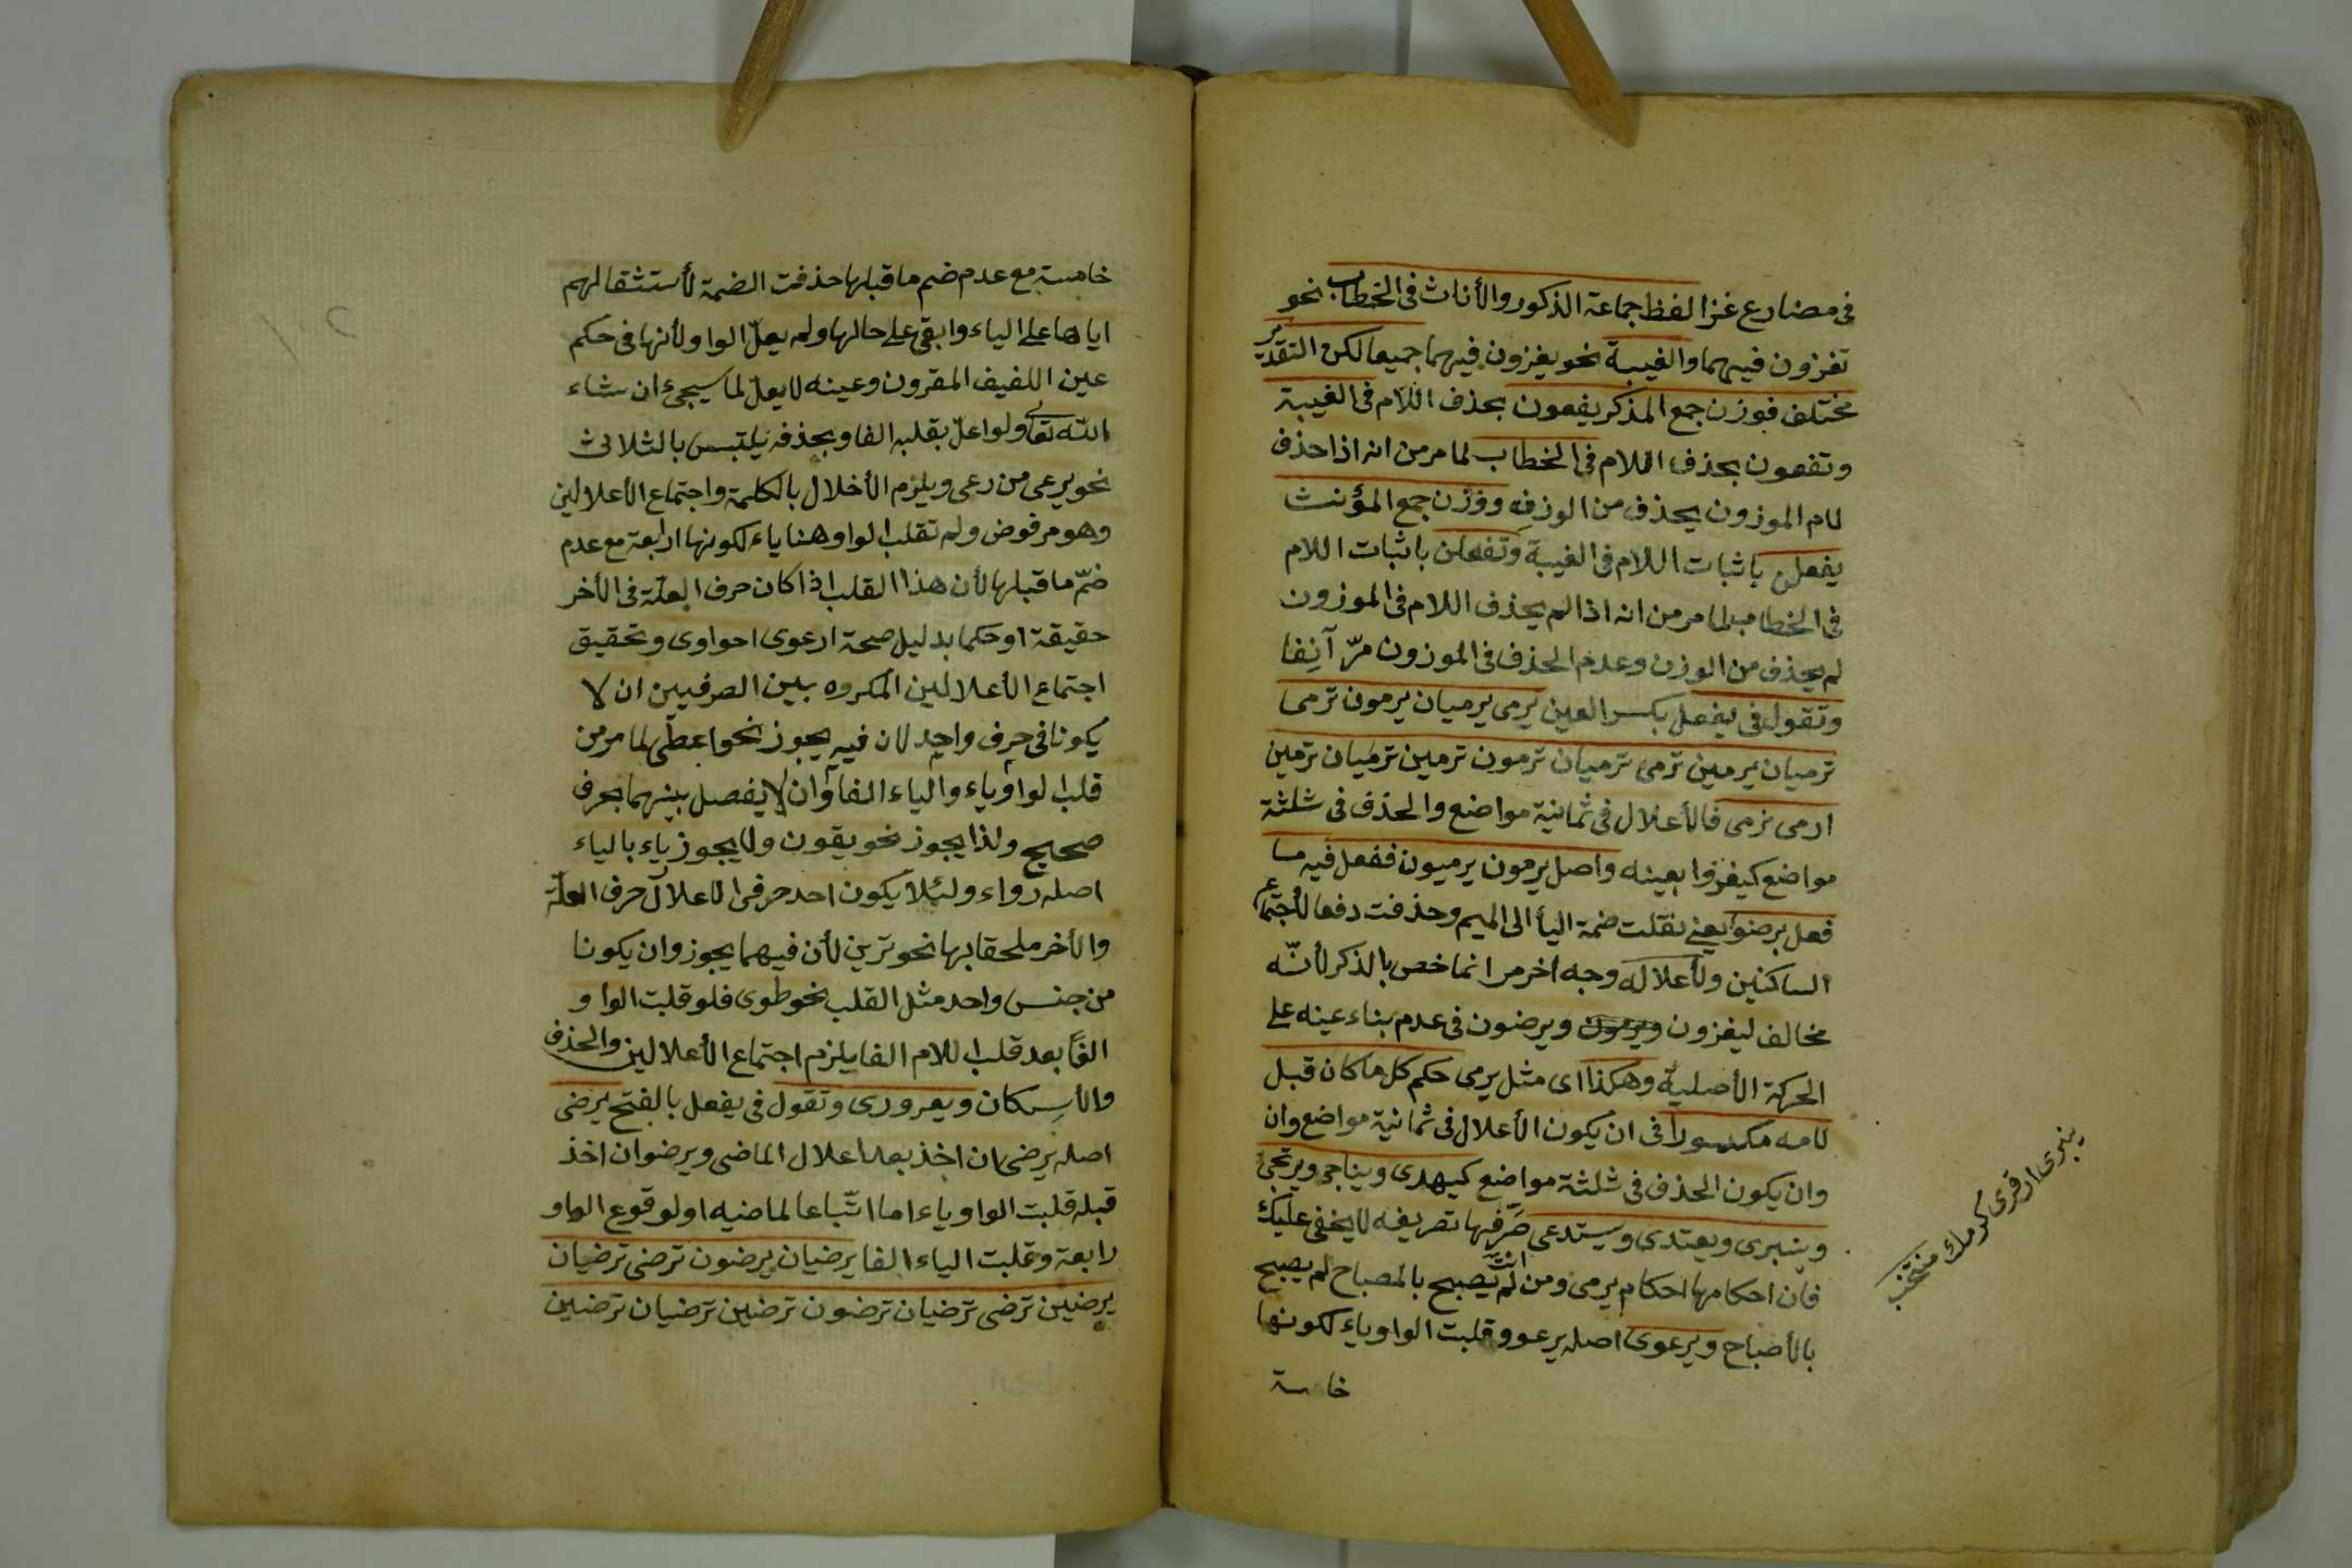 فى مضارع غزا لفظ جماعة الذكور والأناث فى الخطاب نحو
تغزون فيهما والغيبة نحو يغزون فيهما جميعا لكن التقدير
مختلف فوزن جمع المذكر يفعون بحذف اللام فى الغيبة
وتفعون بحذف اللام فى الخطاب لما مر من انه اذا حذف
لام الموزون يحذف من الوزن ووزن جمع المؤنث
يفعلن باثبات اللام فى الغيبة وتفعلن باثبات اللام
فى الخطاب لما مر من انه اذا لم يحذف اللام فى الموزون
لم يحذف من الوزن وعدم الحذف فى الموزون مرّ آنِفا
وتقول فى يفعل بكسر العين يرمى يرميان يرمون ترمى
ترميان يرمين ترمى ترميان ترمون ترمين ترميان ترمين
ارمى نرمى فالأعلال فى ثمانية مواضع والحذف فى ثلثة
مواضع كيغزوا بعينه واصل يرمون يرميون ففعل فيه ما
فعل برضوا يعنى نقلت ضمة اليأ الى الميم وحذفت دفعا لأجتماع
الساكنين ولأعلاله وجه اخر مر انما خص بالذكر لأنّه
مخالف ليغزون ويرضون فى عدم بناء عينه على
الحركة الأصلية وهكذا اى مثل يرمى حكم كل ما كان قبل
لامه مكسورا فى ان يكون الأعلال فى ثمانية مواضع وان
وان يكون الحذف فى ثلثة مواضع كيهدى ويناجى ويرتجى
وينبرى ويعتدى ويستدعى صَرِّفها تصريفه لا يخفى عليك
فان احكامها احكام يرمى ومن لم يصبح بالمصباح لم يصبح
بالأصباح ويرعوى اصله يرعوو قلبت الواو ياء لكونها
خامسة
خامسة مع عدم ضم ما قبلها حذفت الضمة لأستثقالهم
اياها على الياء وابقى على حالها ولم يعلّ الواو لأنها فى حكم
عين اللفيف المقرون وعينه لا يعلّ لما سيجئ ان شاء
الله تعالى ولو اعلّ بقلبه الفا وبحذفه يلتبس بالثلاثى
نحو يرعى من رعى ويلزم الأخلال بالكلمة واجتماع الأعلالين
وهو مرفوض ولم تقلب الواو هنا ياء لكونها اربعة مع عدم
ضمّ ما قبلها لأن هذا القلب اذا كان حرف العلّة فى الأخر
حقيقة او حكما بدليل صحة ارعوى احواوى وتحقيق
اجتماع الأعلالين المكروه بين الصرفيين ان لا
يكونا فى حرف واحد لان فيه يجوز نحو اعطى لما مر من
قلب الواو ياء والياء الفا وان لا يفصل بينهما بحرف
صحيح ولذا يجوز نحو يقون ولا يجوز ياء بالياء
اصله رواء ولئلا يكون احد حرفى الاعلال حرف العلّة
والأخر ملحقا بها نحو ترين لأن فيهما يجوز وان يكونا
من جنس واحد مثل القلب نحو طوى فلو قلبت الواو
الفًا بعد قلب اللام الفا يلزم اجتماع الأعلالين والحذف
والأسكان ويعرورى وتقول فى يفعل بالفتح يرضى
اصله يرضى ان اخذ بعد اعلال الماضى ويرضوان اخذ
قبله قلبت الواو ياء اما اتّباعا لماضيه او لوقوع الواو
رابعة وقلبت الياء الفا يرضيان يرضون ترضى ترضيان
يرضين ترضى ترضيان ترضون ترضين ترضيان ترضين